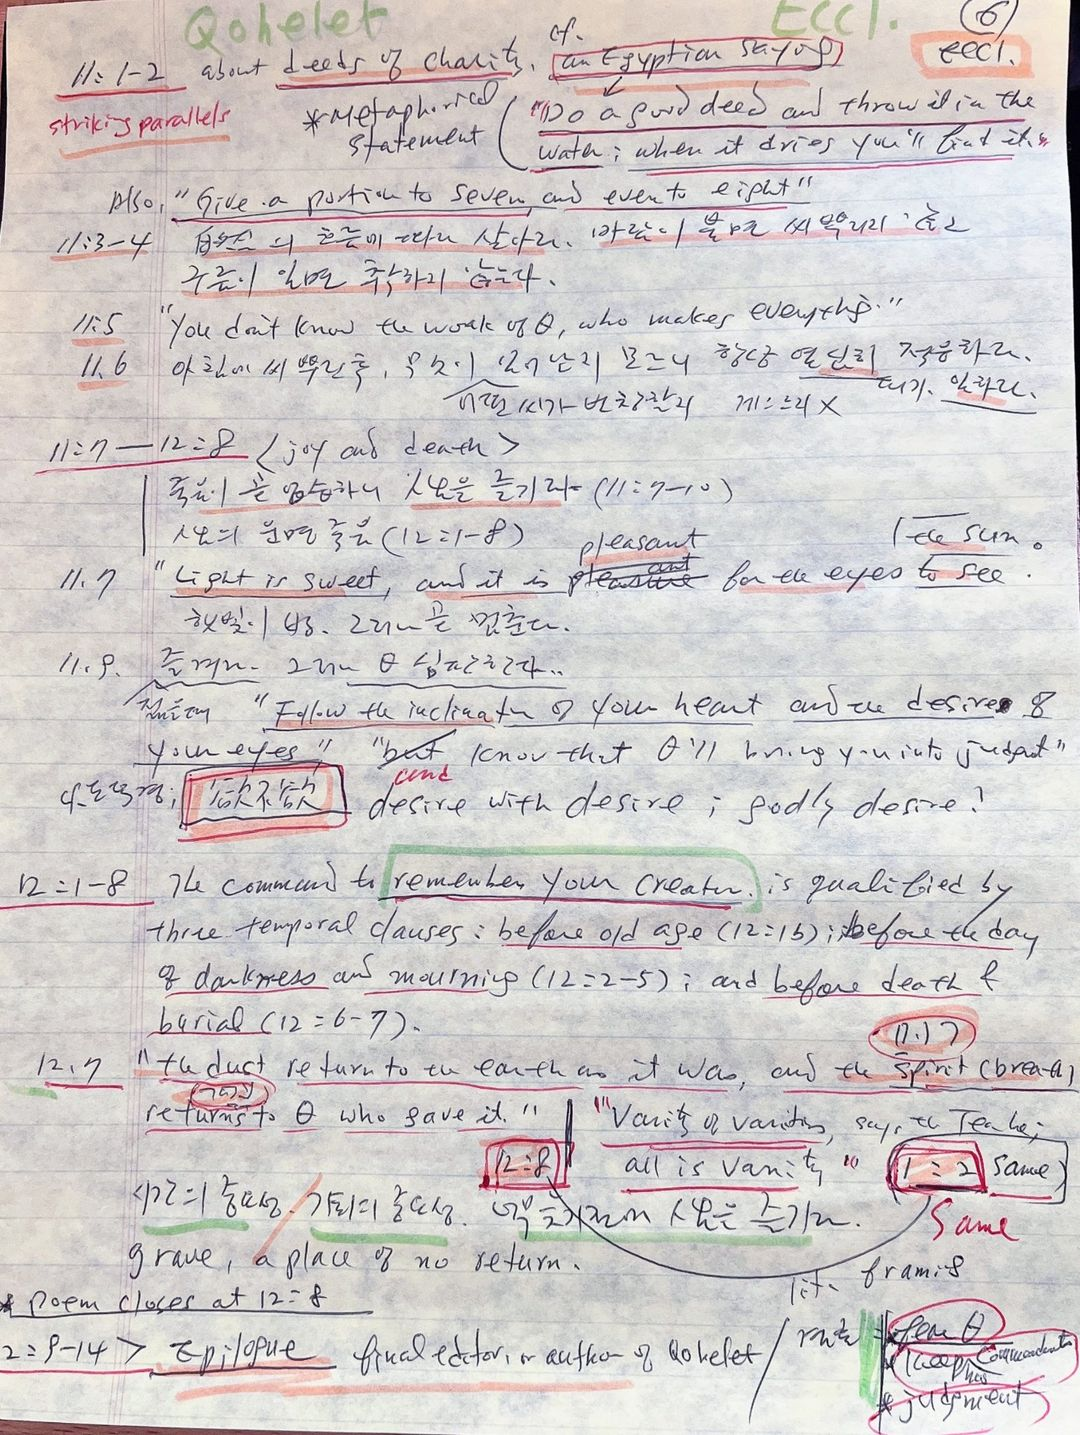 Qohelet Eccl. 6
11:1-2 about deeds of charity. cf. an Egyptian saying eccl.
striking parallels *Metaphorical statement
"Do a good deed and throw it in the
water; when it dries you'll find it."
Also, "Give a portion to seven, and even to eight"
11:3-4 自然의 흐름에 따라 살아라. 바람이 불면 씨 뿌리지 않고
구름이 일면 추수하지 않는다.
11:5 "You don't know the work of θ, who makes everything."
11.6 아침에 씨 뿌린 후, 무엇이 일어날지 모르니 항상 열심히 적응하라.
어떤 씨가 번창할지 게으르지 X 대기. 일하라.
11:7-12:8 <joy and death>
죽음이 곧 엄습하니 生을 즐기라 (11:7-10)
(12:1-8)
11.7 "Light is sweet, and it is pleasant for the eyes to see the sun.
햇빛이 그러나 곧 멈춘다.
11.9. 즐겨라. 그러나 θ 심판한다..
젊을때 "Follow the inclination of your heart and the desires of
your eyes," "but and know that θ'll bring you into judgment"
도덕경; 欲不欲 desire with desire; godly desire!
12:1-8 The command to remember your creator is qualified by
three temporal clauses: before old age (12:1b); before the day
of darkness and mourning (12:2-5); and before death &
burial (12:6-7).
12.7 "the dust return to the earth as it was, and the spirit (breath)
returns to θ who gave it."
"Vanity of vanities, says the Teacher;
12:8 all is vanity" 1:2 same
시간의 중요성. 가치의 중요성. 늙기 전에 生을 즐기라. Same
grave, a place of no return.
lit. framing
* poem closes at 12:8
12:9-14 > Epilogue final editor, or author of Qohelet
fear θ
* keep his commandments
* judgment